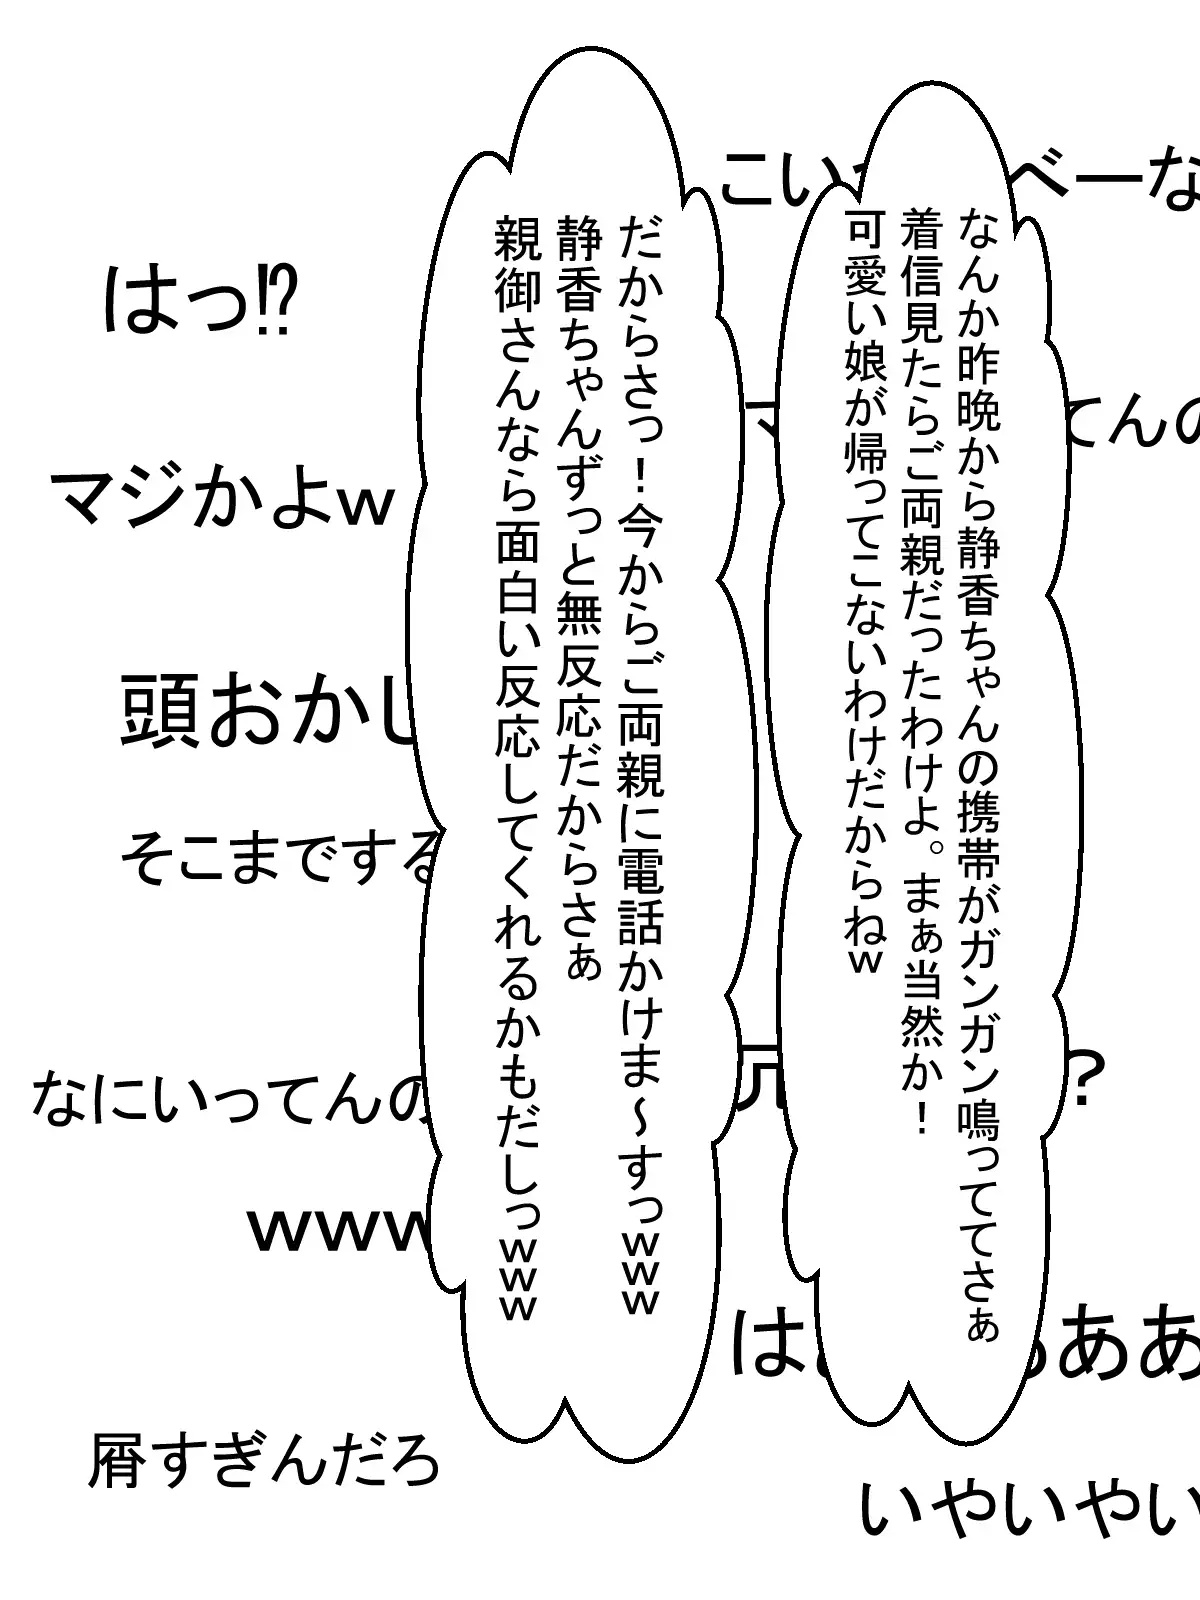 なんか昨晩から静香ちゃんの携帯がガンガン鳴っててさぁ
着信見たらご両親だったわけよ。まぁ当然か！
可愛い娘が帰ってこないわけだからねw
だからさっ！今からご両親に電話かけま～すっwww
静香ちゃんずっと無反応だからさぁ
親御さんなら面白い反応してくれるかもだしっwww
こい
べーな
てんの
?
は
ああ
いやいやい
はっ⁉
マジかよw
頭おかし
そこまでする
なにいってんの
www
屑すぎんだろ